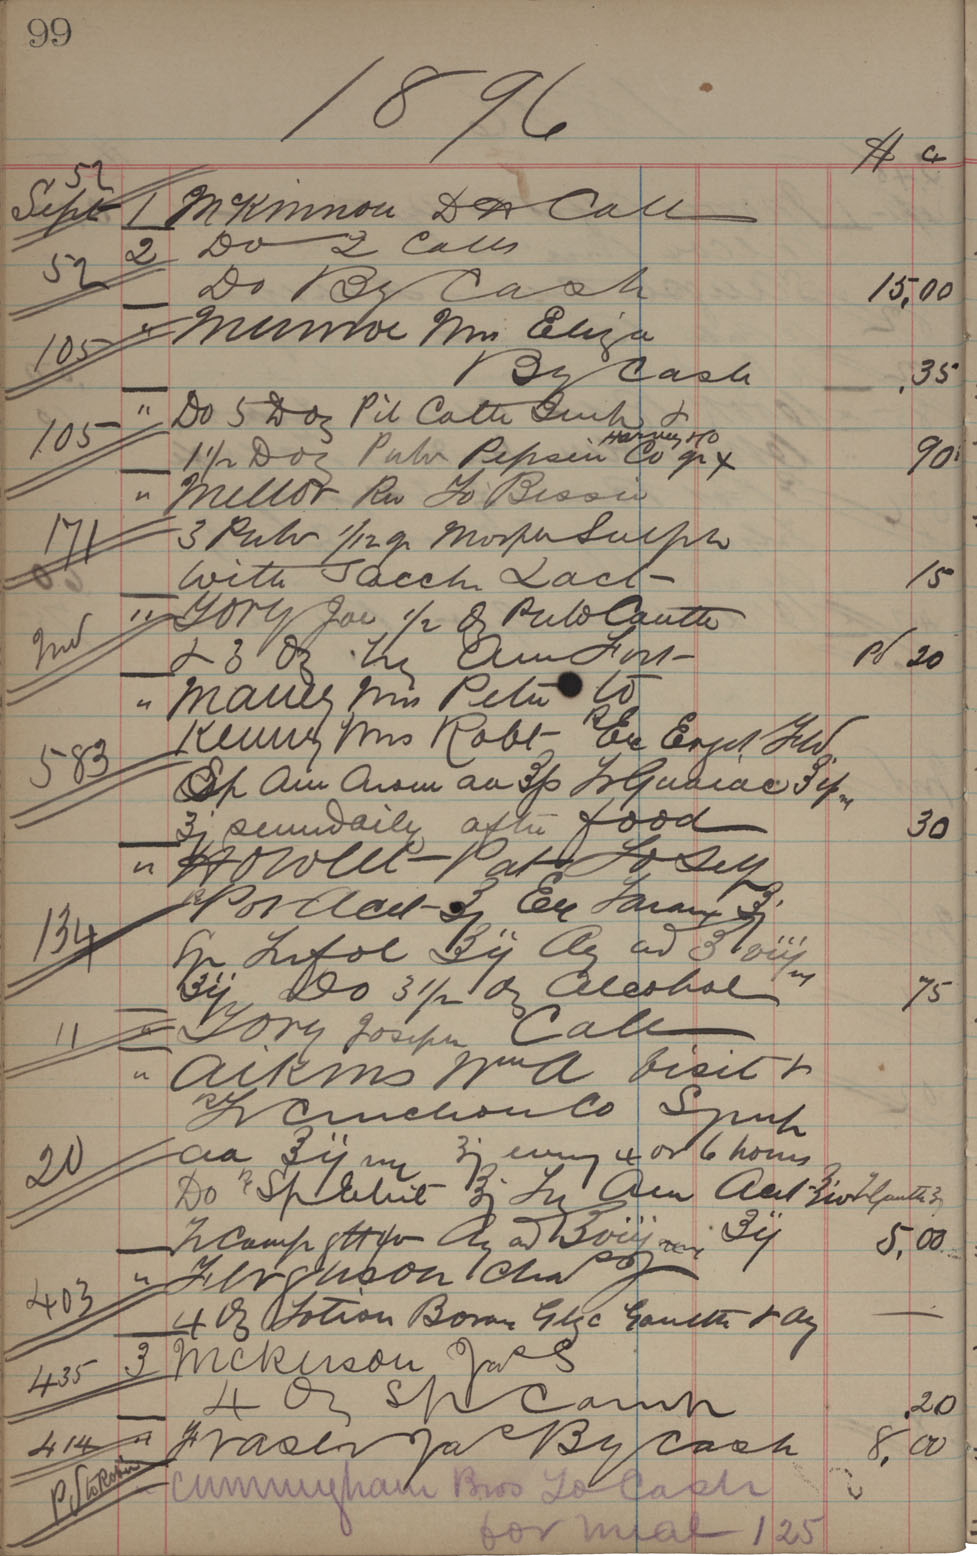 99
1896
$ c
52
Sept 1 McKinnon D A Call
2 Do 2 Calls
52 Do By Cash 15,00
" Munroe Mrs Eliza
105 By Cash .35
" Do 5 Doz Pil Cath &
105 1 1/2 Doz Pulv Pepsin Co gr x 90
" Mellor Rev To Bessie
171 3 Pulv 1/12 gr Morph Sulph
with Sacch Lact 15
" Tory Joe 1/2 Oz Pulv Canth
& 3 Oz Liq Am Fort Pd 20
" Maney Mrs Peter to
Kenney Mrs Robt Rx Ex Ergot Fld
583 Sp Am Arom aa ʒss Tr Guaiac
ʒj semidaily after food 30
" Howlet Pat To Self
Pot Acet ʒj Ex Tarax ʒj
134 Infol ʒij Aq ad ℥viij
ʒij Do 3 1/2 Oz Alcohol 75
11 " Tory Joseph Call
" Aikins Wm A Visit &
Rx Tr Cinchon Co Syrup
20 aa ʒij ʒj every 4 or 6 hours
Do Rx Sp Ether ʒj Liq Am Acet
Tr Camp Aq ad ℥viij ʒij 5,00
403 " Ferguson Chas
4 Oz Lotion Borax Glyc & Aq —
435 3 McKerson Jas S
4 Oz Sp Camph .20
414 " Fraser Jas By Cash 8,00
Cunningham Bros To Cash
for meal 125